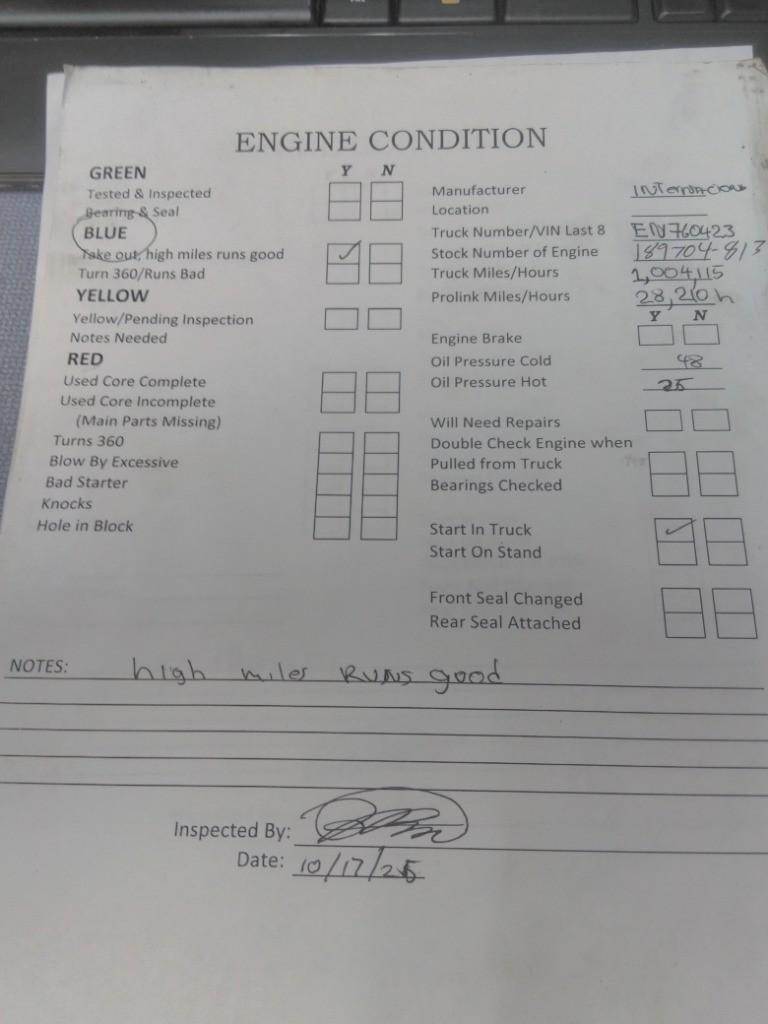 ENGINE CONDITION
GREEN Y N
Tested & Inspected
Bearing & Seal
BLUE
Take out, high miles runs good
Turn 360/Runs Bad
YELLOW
Yellow/Pending Inspection
Notes Needed
RED
Used Core Complete
Used Core Incomplete
(Main Parts Missing)
Turns 360
Blow By Excessive
Bad Starter
Knocks
Hole in Block
Manufacturer
Location
Truck Number/VIN Last 8 EN760423
Stock Number of Engine 189704-813
Truck Miles/Hours 1,004,115
Prolink Miles/Hours 28,210 h
Y N
Engine Brake
Oil Pressure Cold 48
Oil Pressure Hot 25
Will Need Repairs
Double Check Engine when
Pulled from Truck
Bearings Checked
Start In Truck
Start On Stand
Front Seal Changed
Rear Seal Attached
NOTES: high miles RUNS good
Inspected By:
Date: 10/17/25